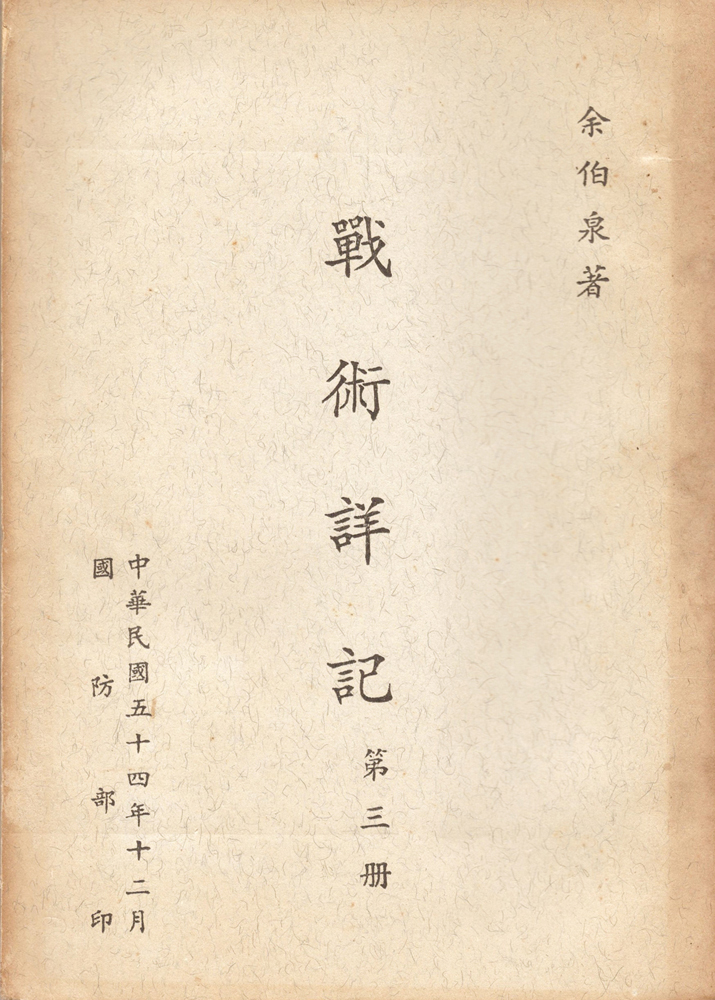 余伯泉著
戰術詳記
第三册
中華民國五十四年十二月
國防部印